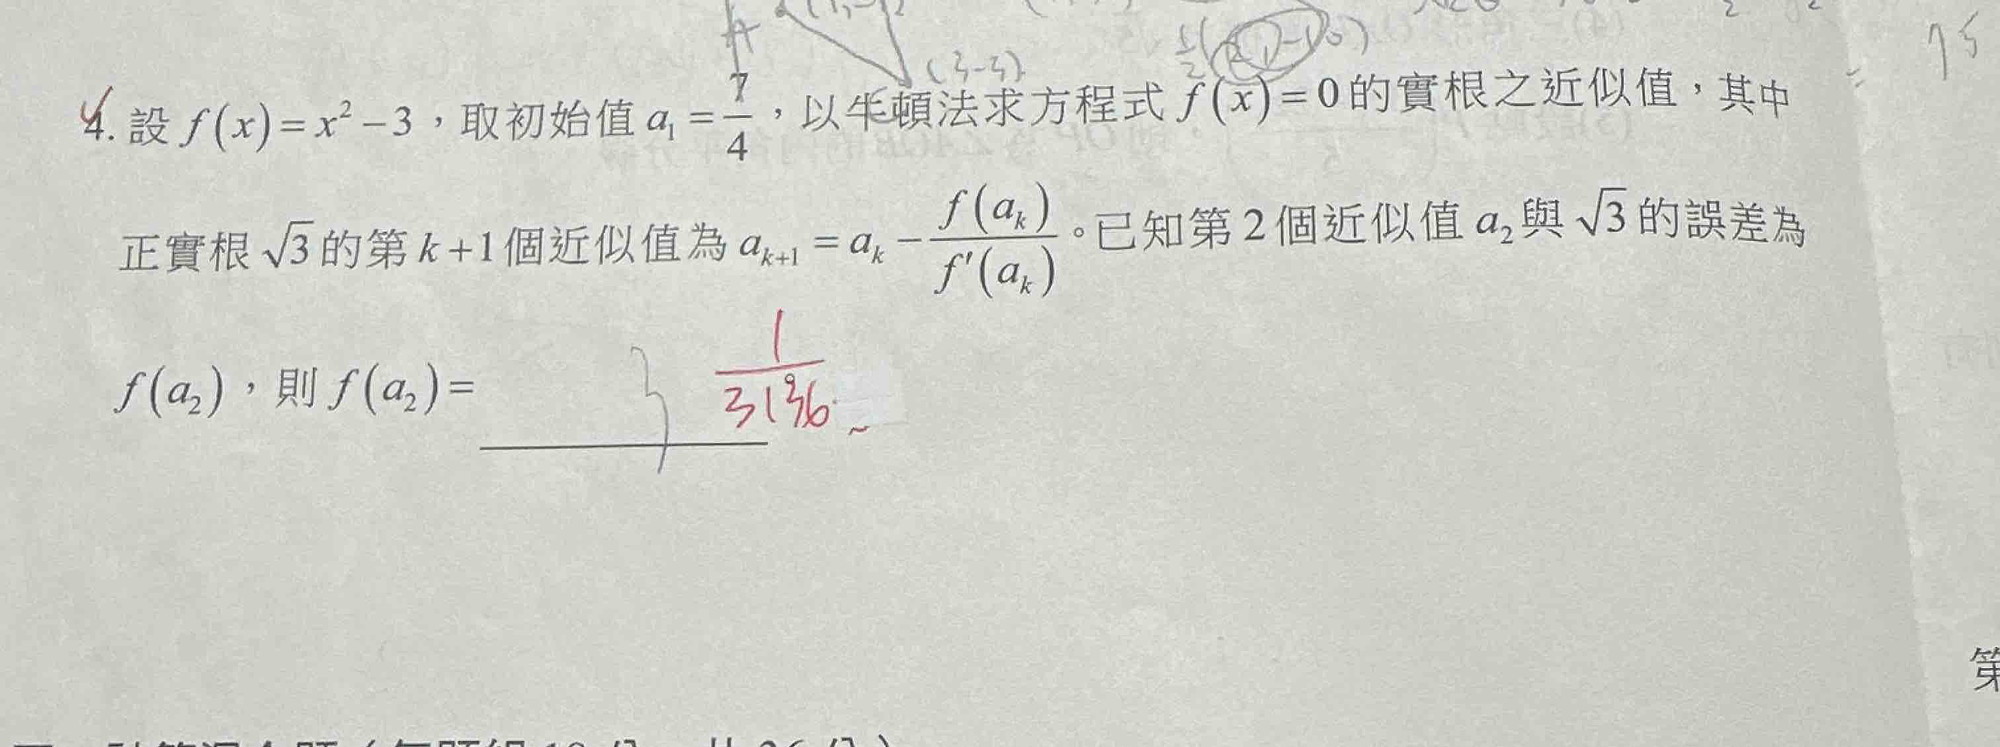 (3-3)
75
4. 設 f(x)=x²-3，取初始值 a₁=7/4，以牛頓法求方程式 f(x)=0的實根之近似值，其中
正實根 √3 的第 k+1個近似值為 aₖ₊₁ = aₖ - f(aₖ)/f'(aₖ)。已知第2個近似值 a₂與 √3 的誤差為
f(a₂)，則 f(a₂)=
1/3136
第